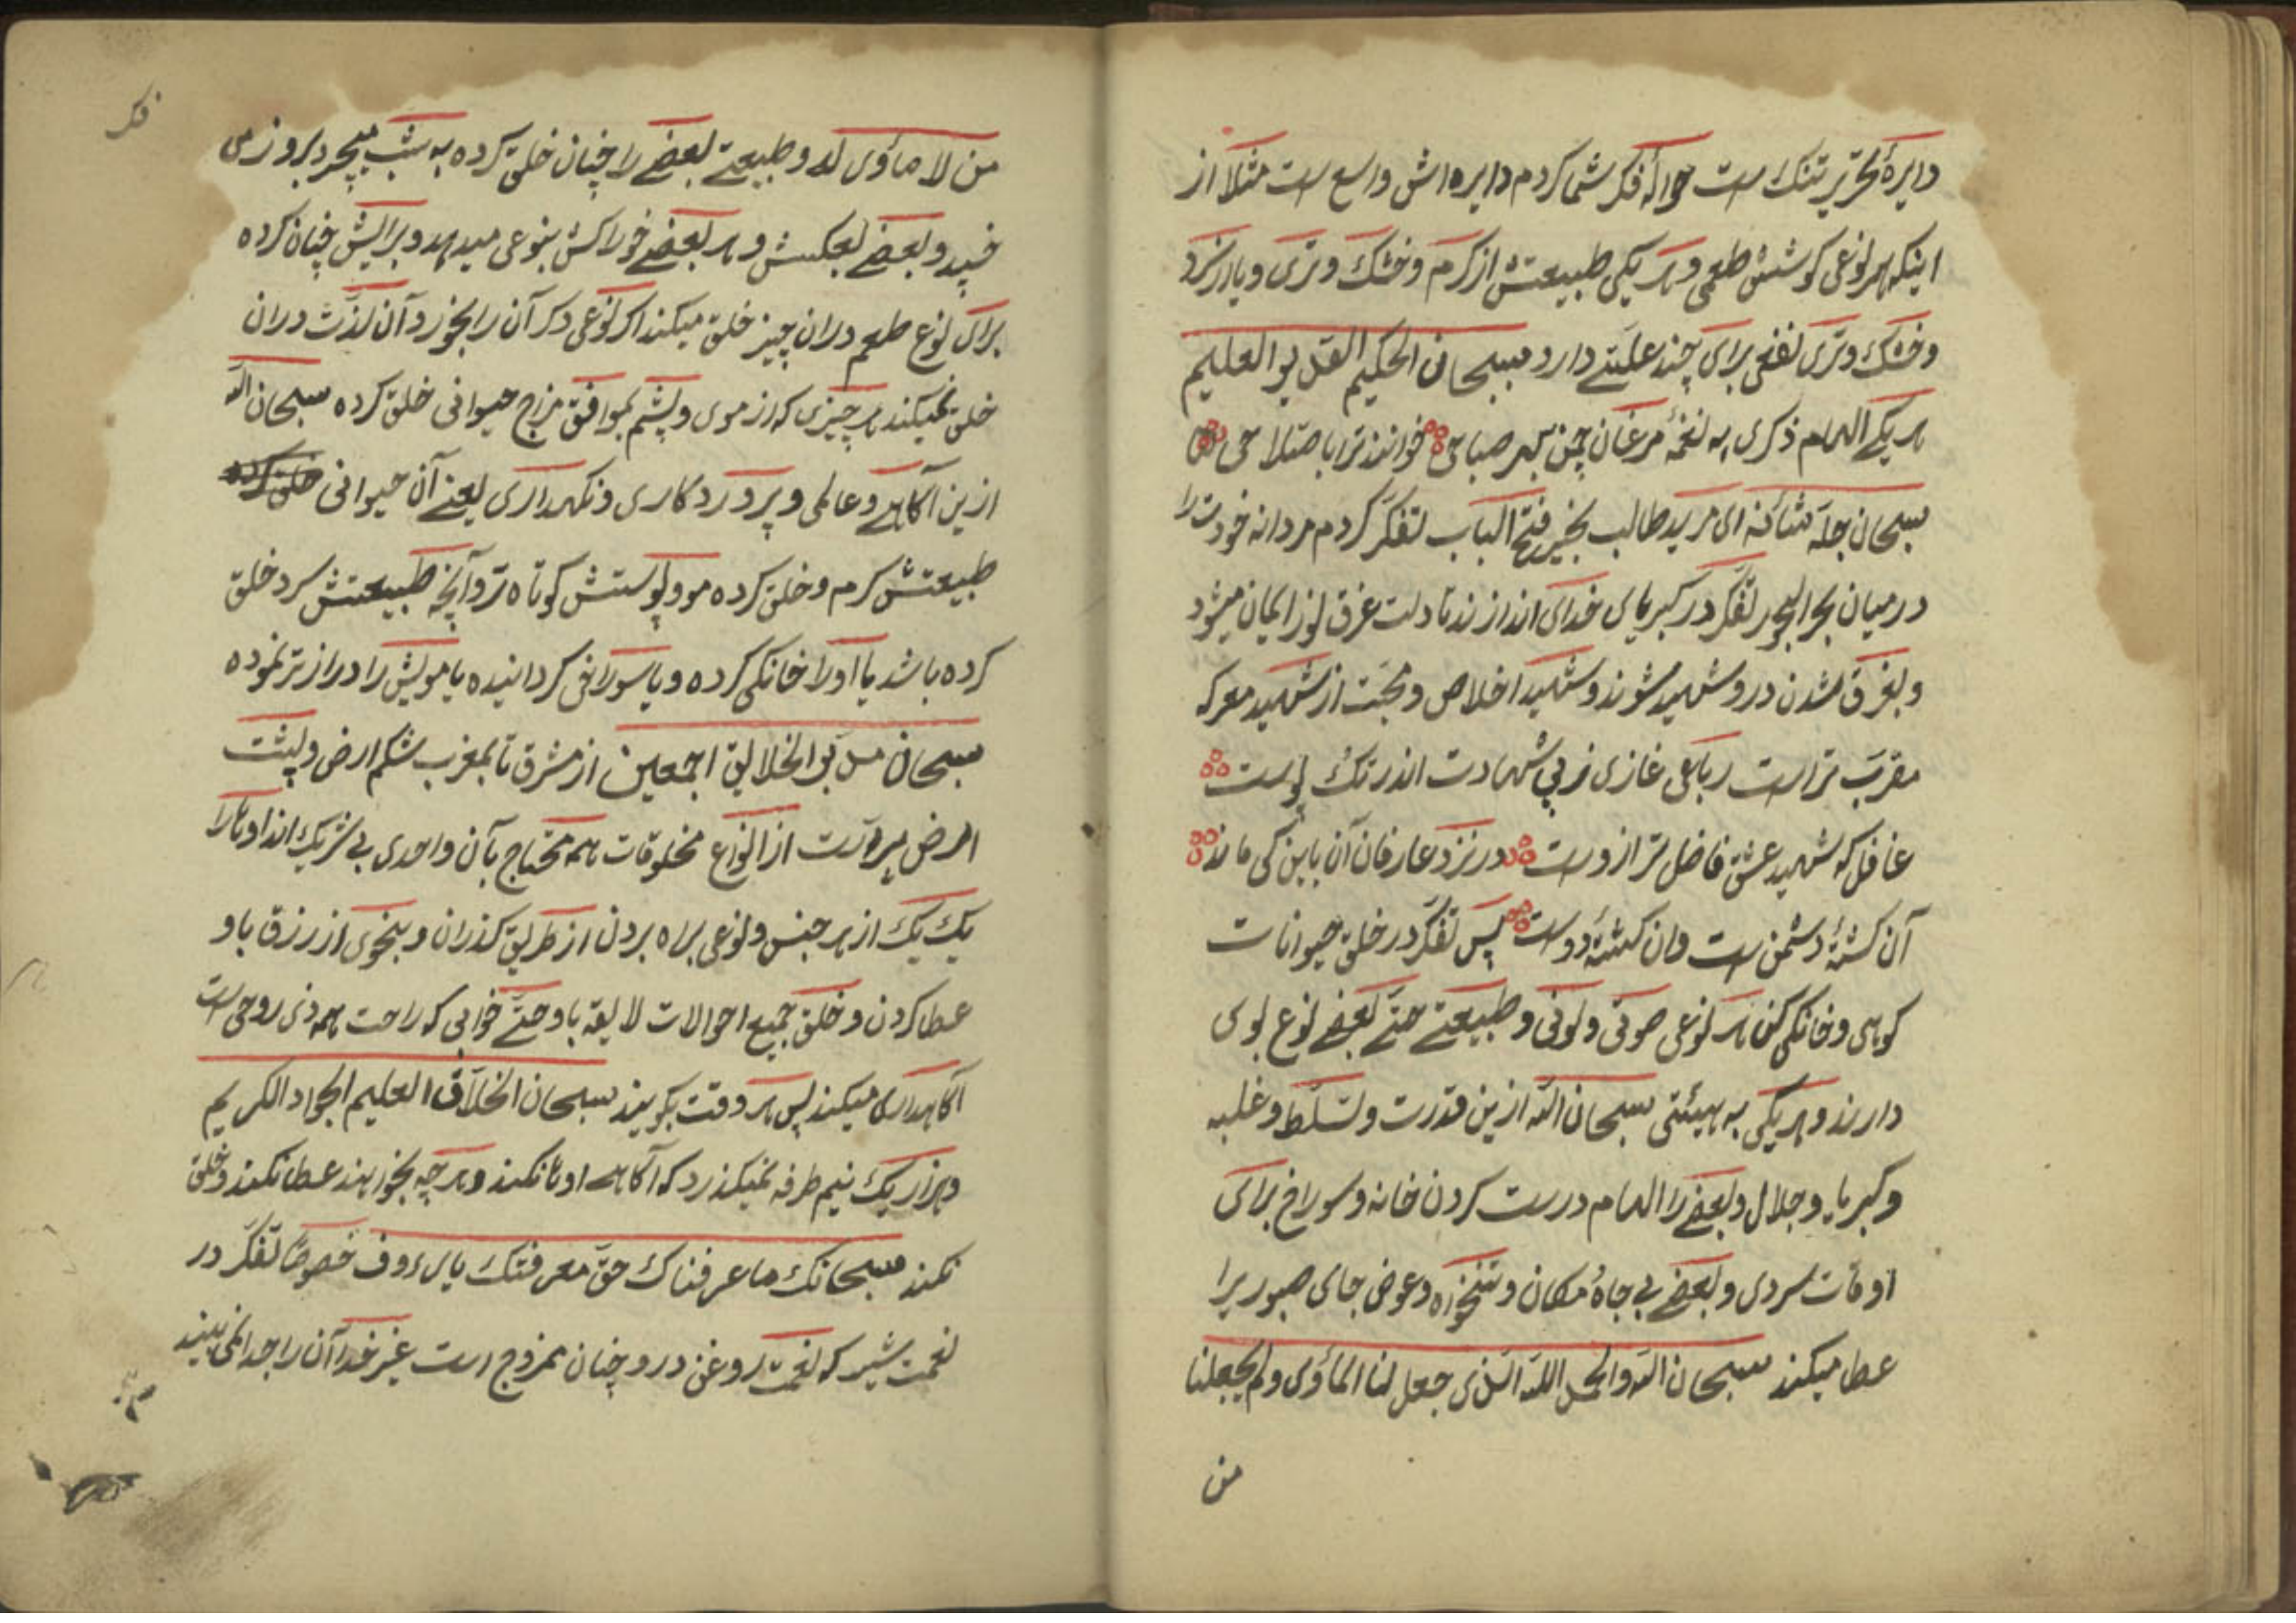 دایرهٔ تحریر تنک است حوالهٔ فکر شما کردم دایره اش واسع است مثلا از
اینکه هر نوعی کوشتش طعمی و هر یکی طبیعتش از کرم و خشک و تری و یا از سرد
و خشک و تری نفعی برای چند علتے دارد سبحان الحکیم القدیر العلیم
هر یکے الهام ذکری به نغمهٔ مرغان چمن بهر صباحی خوانند ترا باصطلاحی
سبحان جلّه شانه ای مرید طالب بخیر فتح الباب تفکّر کردم مردانه خودت را
در میان بحر البحور تفکّر در کبریای خدای اندازند تا دلت غرق نور ایمان میشود
و بغرق شدن درو شهید شوند و شهید اخلاص و محبّت از شهید معرکه
مقرب تر است رباعی غازی ز پی شهادت اندر تک پوست
غافل که شهید عشق فاضل تر ازوست در نزد عارفان آن باین کی ماند
آن کشتهٔ دشمن است وان کشتهٔ دوست پس تفکّر در خلق حیوانات
کوهی و خانکی کن هر نوعی صوتی و لونی و طبیعتے حتّے بعضے نوع بوی
دارند و هر یکی به هیئتی سبحان الله ازین قدرت و تسلّط و غلبه
و کبریاء و جلال و بعضے را الهام درست کردن خانه و سوراخ برای
اوقات سردی و بعضے بی جاه مکان و عوض جای صبوریرا
عطا میکند سبحان الله والحمد لله الذی جعل لنا المأوی و لم یجعلنا
من
من لا مأوی له و طبیعتے بعضے را چنان خلق کرده به شب میچرد بروز می
خپد و بعضے بعکسش و هر بعضے خوراکش بنوعی میدهد و برایش چنان کرده
برای نوع طعم در ان چیز خلق میکند اکر نوعی دکر آن را بخورد آن لذّت در ان
خلق نمیکند هر چیزی که از موی و پشم بموافق مزاج حیوانی خلق کرده سبحان الله
ازین آکاهے و عالمی و پروردکاری و نکهداری یعنے آن حیوانی خلق کرده
طبیعتش کرم و خلق کرده مو و پوستش کوتاه تر و آنچه طبیعتش سرد خلق
کرده باشد یا اورا خانکی کرده و یا سوراخی کردانیده یا مویش را دراز تر نموده
سبحان مربی الخلایق اجمعین از مشرق تا بمغرب شکم ارض و پشت
ارض پره است از انواع مخلوقات همه محتاج بآن واحدی بی شریک اند اوتارا
یک یک از هر جنس و نوعی براه بردن از طریق کذران و بنحوی از رزق باو
عطا کردن و خلق جمیع احوالات لایقه باو حتّے خوابی که راحت همه ذی روحی است
آکاهداری میکند پس هر وقت بکویند سبحان الخلّاق العلیم الجواد الکریم
و هزار یک نیم طرفه نمیکذرد که آکاهے اوتا نکند و هر چه بخواهند عطا نکند و خلق
نکند سبحانک ما عرفناک حقّ معرفتک یا رءوف خصوصًا تفکّر در
نعمت شیر که نعمت روغن درو چنان ممزوج است غیر خدا آن را جدا نمی بیند